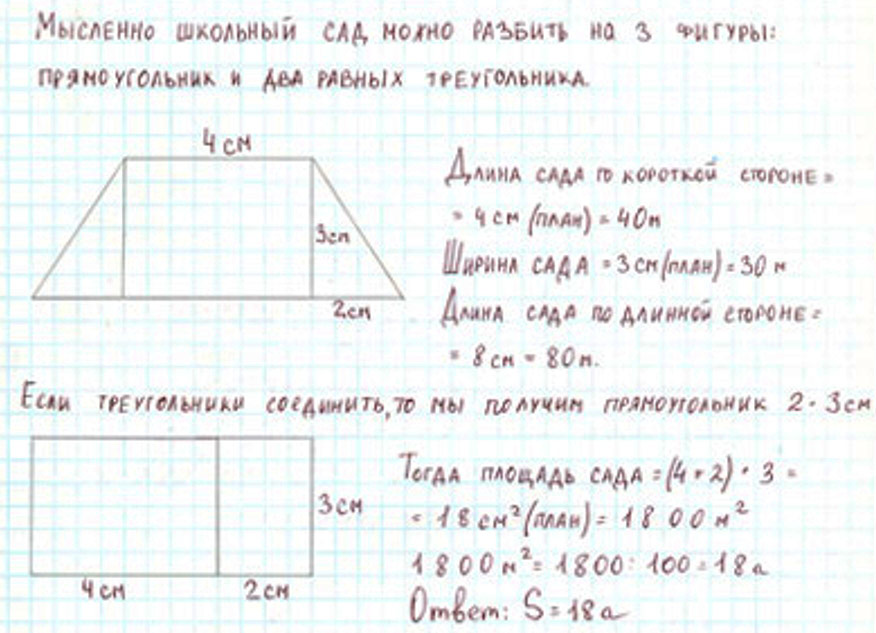 Мысленно школьный сад можно разбить на 3 фигуры:
прямоугольник и два равных треугольника.
4 см
3см
2см
Длина сада по короткой стороне =
= 4 см (план) = 40м
Ширина сада = 3 см (план) = 30 м
Длина сада по длинной стороне =
= 8 см = 80м.
Если треугольники соединить, то мы получим прямоугольник 2 · 3 см
3 см
4 см
2 см
Тогда площадь сада = (4 + 2) · 3 =
= 18 см² (план) = 1800 м²
1800 м² = 1800 : 100 = 18 а
Ответ: S = 18 а